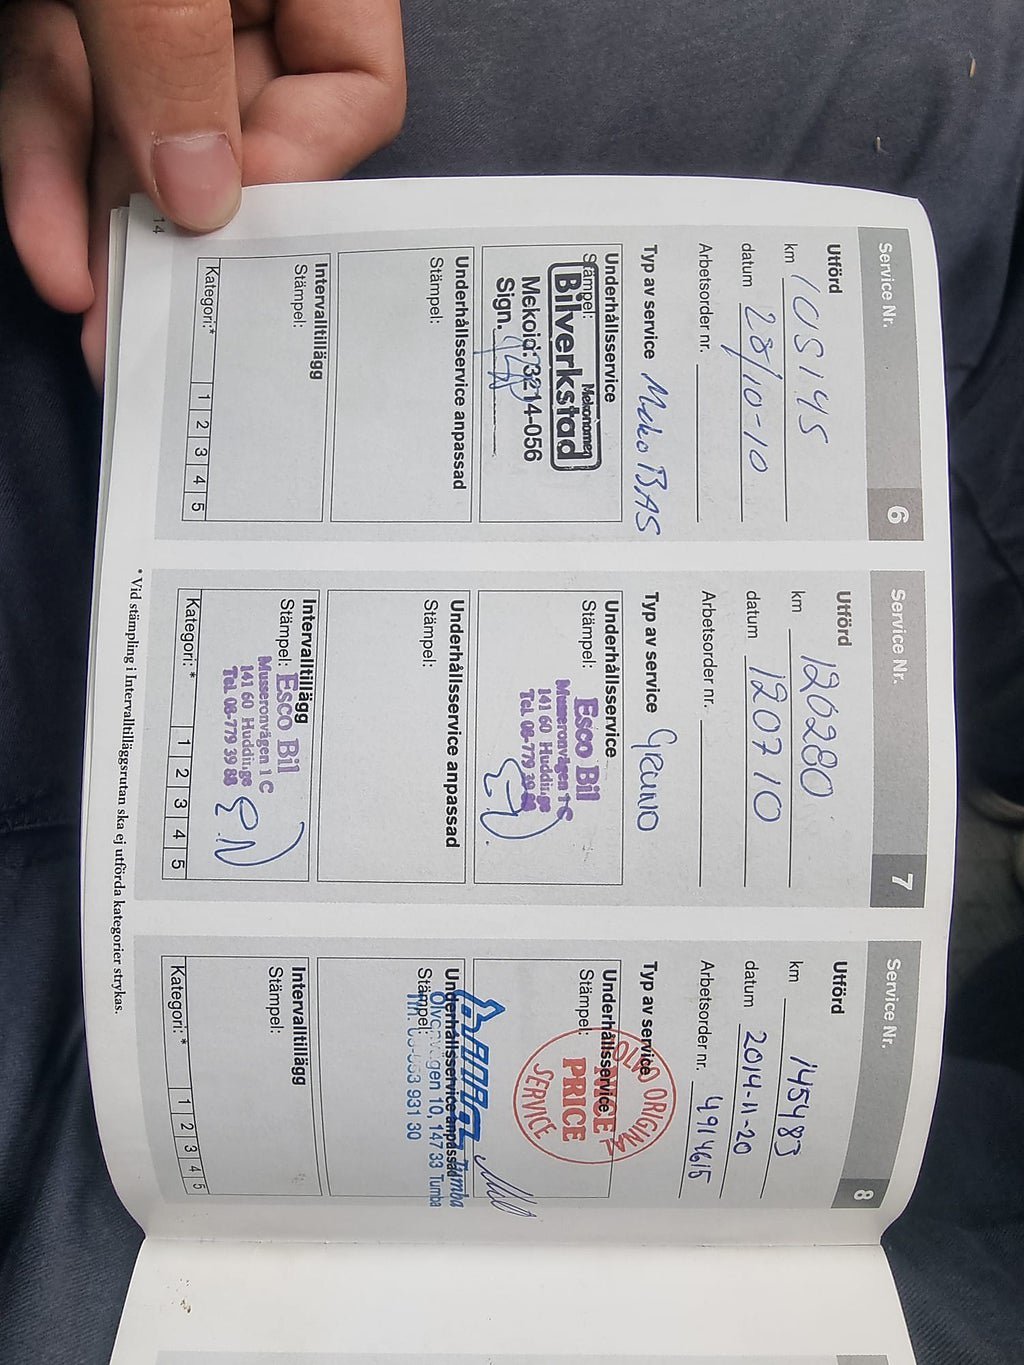 Service Nr. 6
Utförd
km 105145
datum 28/10-10
Arbetsorder nr.
Typ av service Meko BAS
Underhållsservice
Stämpel:
Mekonomen
Bilverkstad
Mekoid:3214-056
Sign.
Underhållsservice anpassad
Stämpel:
Intervalltillägg
Stämpel:
Kategori:* 1 2 3 4 5
14
Service Nr. 7
Utförd
km 120280
datum 120710
Arbetsorder nr.
Typ av service Grund
Underhållsservice
Stämpel:
Esco Bil
Musseronvägen 1 C
141 60 Huddinge
Tel. 08-779 39 88
Underhållsservice anpassad
Stämpel:
Intervalltillägg
Stämpel:
Esco Bil
Musseronvägen 1 C
141 60 Huddinge
Tel. 08-779 39 88
Kategori:* 1 2 3 4 5
* Vid stämpling i Intervalltilläggsrutan ska ej utförda kategorier strykas.
Service Nr. 8
Utförd
km 145483
datum 2014-11-20
Arbetsorder nr. 4914615
Typ av service
Underhållsservice
Stämpel:
ORIGINAL
PRICE
SERVICE
Underhållsservice anpassad
Stämpel:
Tumba
10, 147 33 Tumba
931 30
Intervalltillägg
Stämpel:
Kategori:* 1 2 3 4 5